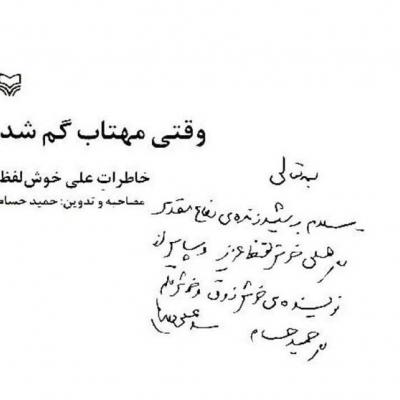 وقتی مهتاب گم شد
خاطراتِ علی خوش‌لفظ
مصاحبه و تدوین: حمید حسام
بسمه‌تعالی
سلام بر شهید زنده‌ی دفاع مقدس
علی خوش‌لفظ عزیز و سپاس از
نویسنده‌ی خوش‌ذوق و خوش‌قلم
حمید حسام